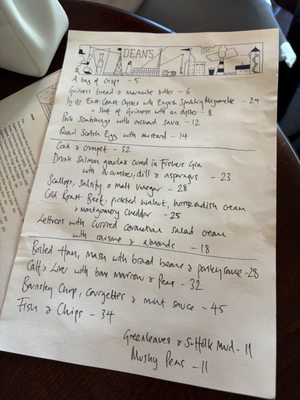 DEAN'S
A bag of crisps - 5
Guinness bread & marmite butter - 6
with English Sparkling Mignonette - 24
+ Shot of Guinness with an oyster - 8
Pork Scratchings with orchard sauce - 12
Quail Scotch Eggs with mustard - 14
Crab & crumpet - 32
Salmon cured in Fisher Gin
with cucumber, dill & asparagus - 23
Scallops, Salsify & Malt Vinegar - 28
Cold Roast Beef, pickled walnut, horseradish cream
& Montgomery cheddar - 25
Lettuces with curried Coronation salad cream
with raisins & almonds - 18
Boiled Ham, mash with broad beans & parsley sauce - 28
Calf's Liver with bone marrow & peas - 32
Barnsley Chop, courgettes & mint sauce - 45
Fish & Chips - 34
Green leaves & Suffolk Mud - 11
Mushy Peas - 11